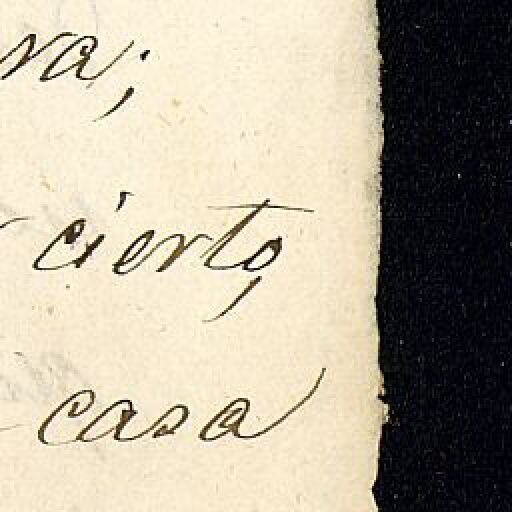 va;
cierto,
casa